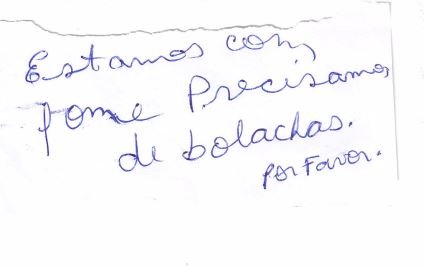 Estamos com
fome Precisamos
de bolachas.
Por Favor.